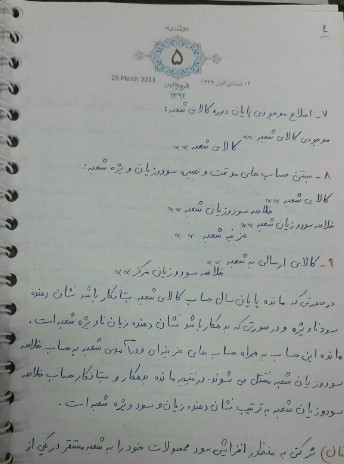 ٤
دوشنبه
۵
25 March 2013
۱۲ جمادی الاول ۱۴۳۴
فروردین
۱۳۹۲
۷- اصلاح موجودی پایان دوره کالای شعبه:
موجودی کالای شعبه ××
کالای شعبه ××
۸- بستن حساب های موقت و تعیین سود و زیان ویژه شعبه:
کالای شعبه ××
خلاصه سود و زیان شعبه ××
خلاصه سود و زیان شعبه ××
هزینه شعبه ××
۹- کالای ارسالی به شعبه ××
خلاصه سود و زیان مرکز ××
درصورتی که مانده پایان سال حساب کالای شعبه بستانکار باشد نشان دهنده
سود ناویژه و درصورتی که بدهکار باشد نشان دهنده زیان ناویژه شعبه است.
مانده این حساب به همراه حساب های هزینه ای و درآمدی شعبه به حساب خلاصه
سود و زیان شعبه منتقل می شوند. در نتیجه مانده بدهکار و بستانکار حساب خلاصه
سود و زیان شعبه به ترتیب نشان دهنده زیان و سود ویژه شعبه است.
شرکتی به منظور افزایش سود محصولات خود را به شعبه مستقر در یکی از